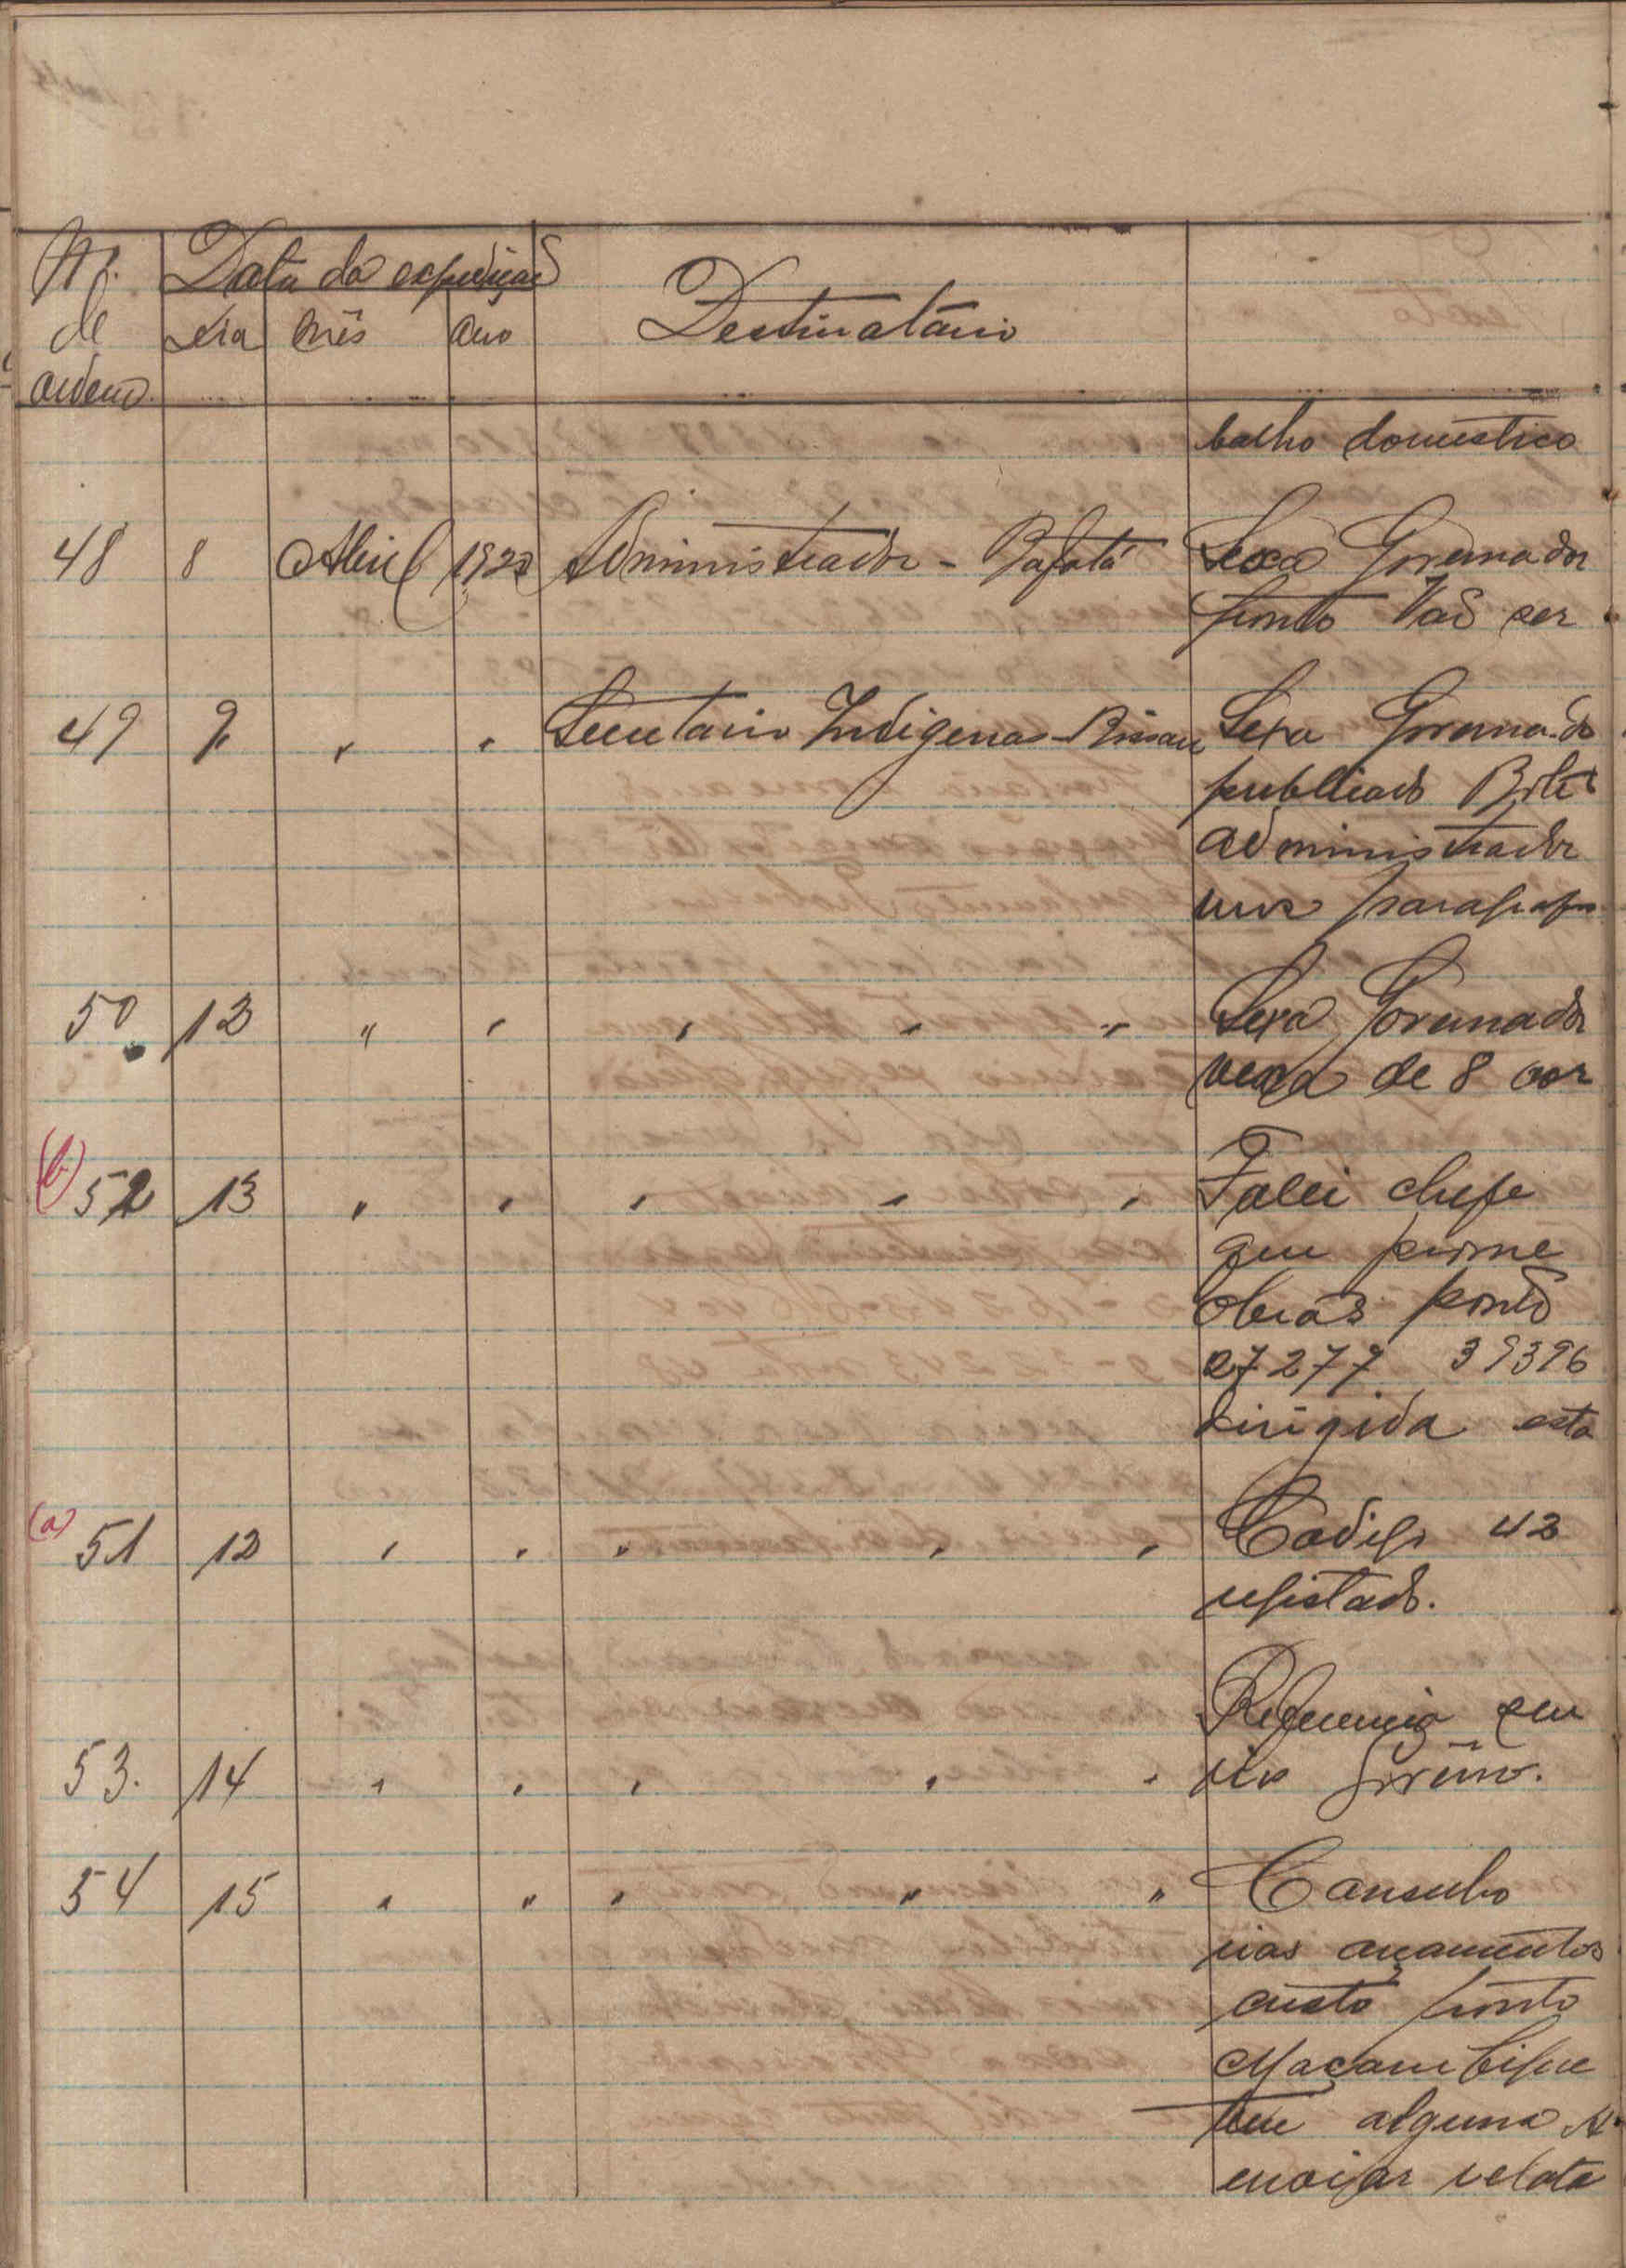 Nº. de ordem
Data da expedição
Dia Mês Ano
Destinatário
balho domestico
48 8 Abril 192 Administrador - Bafatá Sexa Governador
ponto Vão ser
49 9 " " Secretario Indigenas - Bissau Sexa Governado
publicado
administrador
50 12 " " " " " Sexa Governador
de 8 cor
(b) 52 13 " " " " " Falei chefe
que
obras ponto
27277 39396
dirigida esta
(a) 51 12 " " " " " Codigo 42
registado.
Referencia
53. 14 " " " " "
54 15 " " " " " Consulto
orçamentos
custo ponto
Maçambique
tem alguma
enviar relato